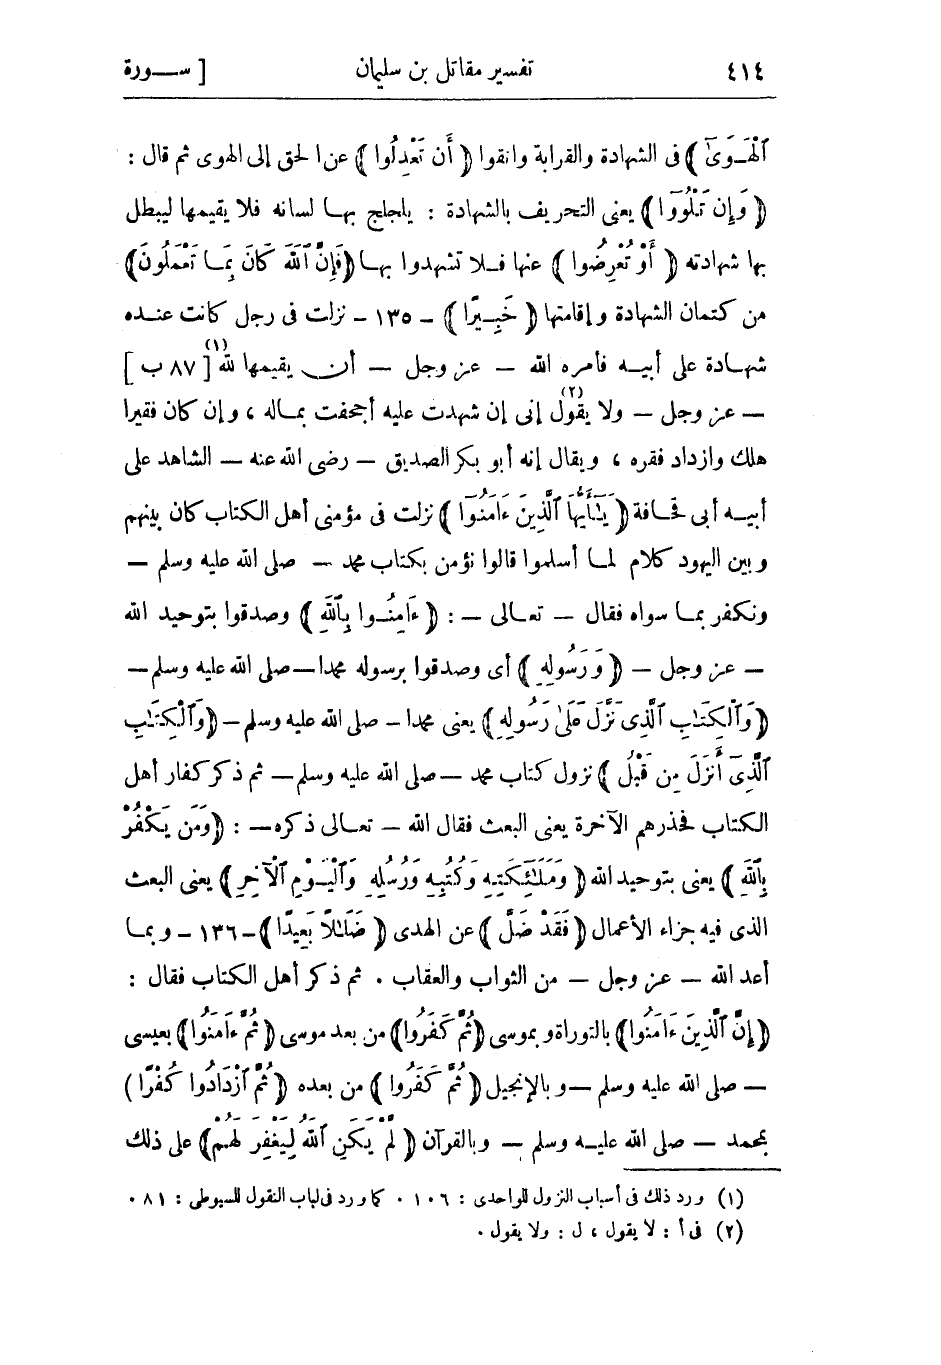 ٤١٤ تفسير مقاتل بن سليمان [ سـورة
ٱلْهَـوَىٰٓ ) فى الشهادة والقرابة واتقوا ( أَن تَعْدِلُوا ) عن الحق إلى الهوى ثم قال :
( وَإِن تَلْوُۥٓا ) يعنى التحريف بالشهادة : يلجلج بهـا لسانه فلا يقيمها ليبطل
بها شهادته ( أَوْ تُعْرِضُوا ) عنها فـلا تشهدوا بهـا ( فَإِنَّ ٱللَّهَ كَانَ بِمَـا تَعْمَلُونَ )
من كتمان الشهادة وإقامتها ( خَبِـيرًا ) – ١٣٥ – نزلت فى رجل كانت عنـده
شهـادة على أبيـه فأمره الله – عز وجل – أن يقيمها لله (١) [ ٨٧ ب ]
– عز وجل – ولا يقول (٢) إنى إن شهدت عليه أجحفت بمـاله ، وإن كان فقيرا
هلك وازداد فقره ، ويقال إنه أبو بكر الصديق – رضى الله عنه – الشاهد على
أبيـه أبى قحـافة ( يَـٰٓأَيُّهَا ٱلَّذِينَ ءَامَنُوٓا ) نزلت فى مؤمنى أهل الكتاب كان بينهم
وبين اليهود كلام لمـا أسلموا قالوا نؤمن بكتاب محمد – صلى الله عليه وسلم –
ونكفر بمـا سواه فقال – تعـالى – : ( ءَامِنُـوا بِٱللَّهِ ) وصدقوا بتوحيد الله
– عز وجل – ( وَرَسُولِهِ ) أى وصدقوا برسوله محمدا – صلى الله عليه وسلم –
( وَٱلْكِتَـٰبِ ٱلَّذِى نَزَّلَ عَلَىٰ رَسُولِهِ ) يعنى محمدا – صلى الله عليه وسلم – ( وَٱلْكِتَـٰبِ
ٱلَّذِىٓ أَنزَلَ مِن قَبْلُ ) نزول كتاب محمد – صلى الله عليه وسلم – ثم ذكر كفار أهل
الكتاب فحذرهم الآخرة يعنى البعث فقال الله – تعـالى ذكره – : ( وَمَن يَكْفُرْ
بِٱللَّهِ ) يعنى بتوحيد الله ( وَمَلَـٰٓئِكَتِهِ وَكُتُبِهِ وَرُسُلِهِ وَٱلْيَـوْمِ ٱلْآخِرِ ) يعنى البعث
الذى فيه جزاء الأعمال ( فَقَدْ ضَلَّ ) عن الهدى ( ضَلَـٰلًا بَعِيدًا ) – ١٣٦ – وبمـا
أعد الله – عز وجل – من الثواب والعقاب . ثم ذكر أهل الكتاب فقال :
( إِنَّ ٱلَّذِينَ ءَامَنُوا ) بالتوراة وبموسى ( ثُمَّ كَفَرُوا ) من بعد موسى ( ثُمَّ ءَامَنُوا ) بعيسى
– صلى الله عليه وسلم – وبالإنجيل ( ثُمَّ كَفَرُوا ) من بعده ( ثُمَّ ٱزْدَادُوا كُفْرًا )
بمحمد – صلى الله عليـه وسلم – وبالقرآن ( لَمْ يَكُنِ ٱللَّهُ لِيَغْفِرَ لَهُمْ ) على ذلك
(١) ورد ذلك فى أسباب النزول للواحدى : ١٠٦ . كما ورد فى لباب النقول للسيوطى : ٨١ .
(٢) فى أ : لا يقول ، ل : ولا يقول .